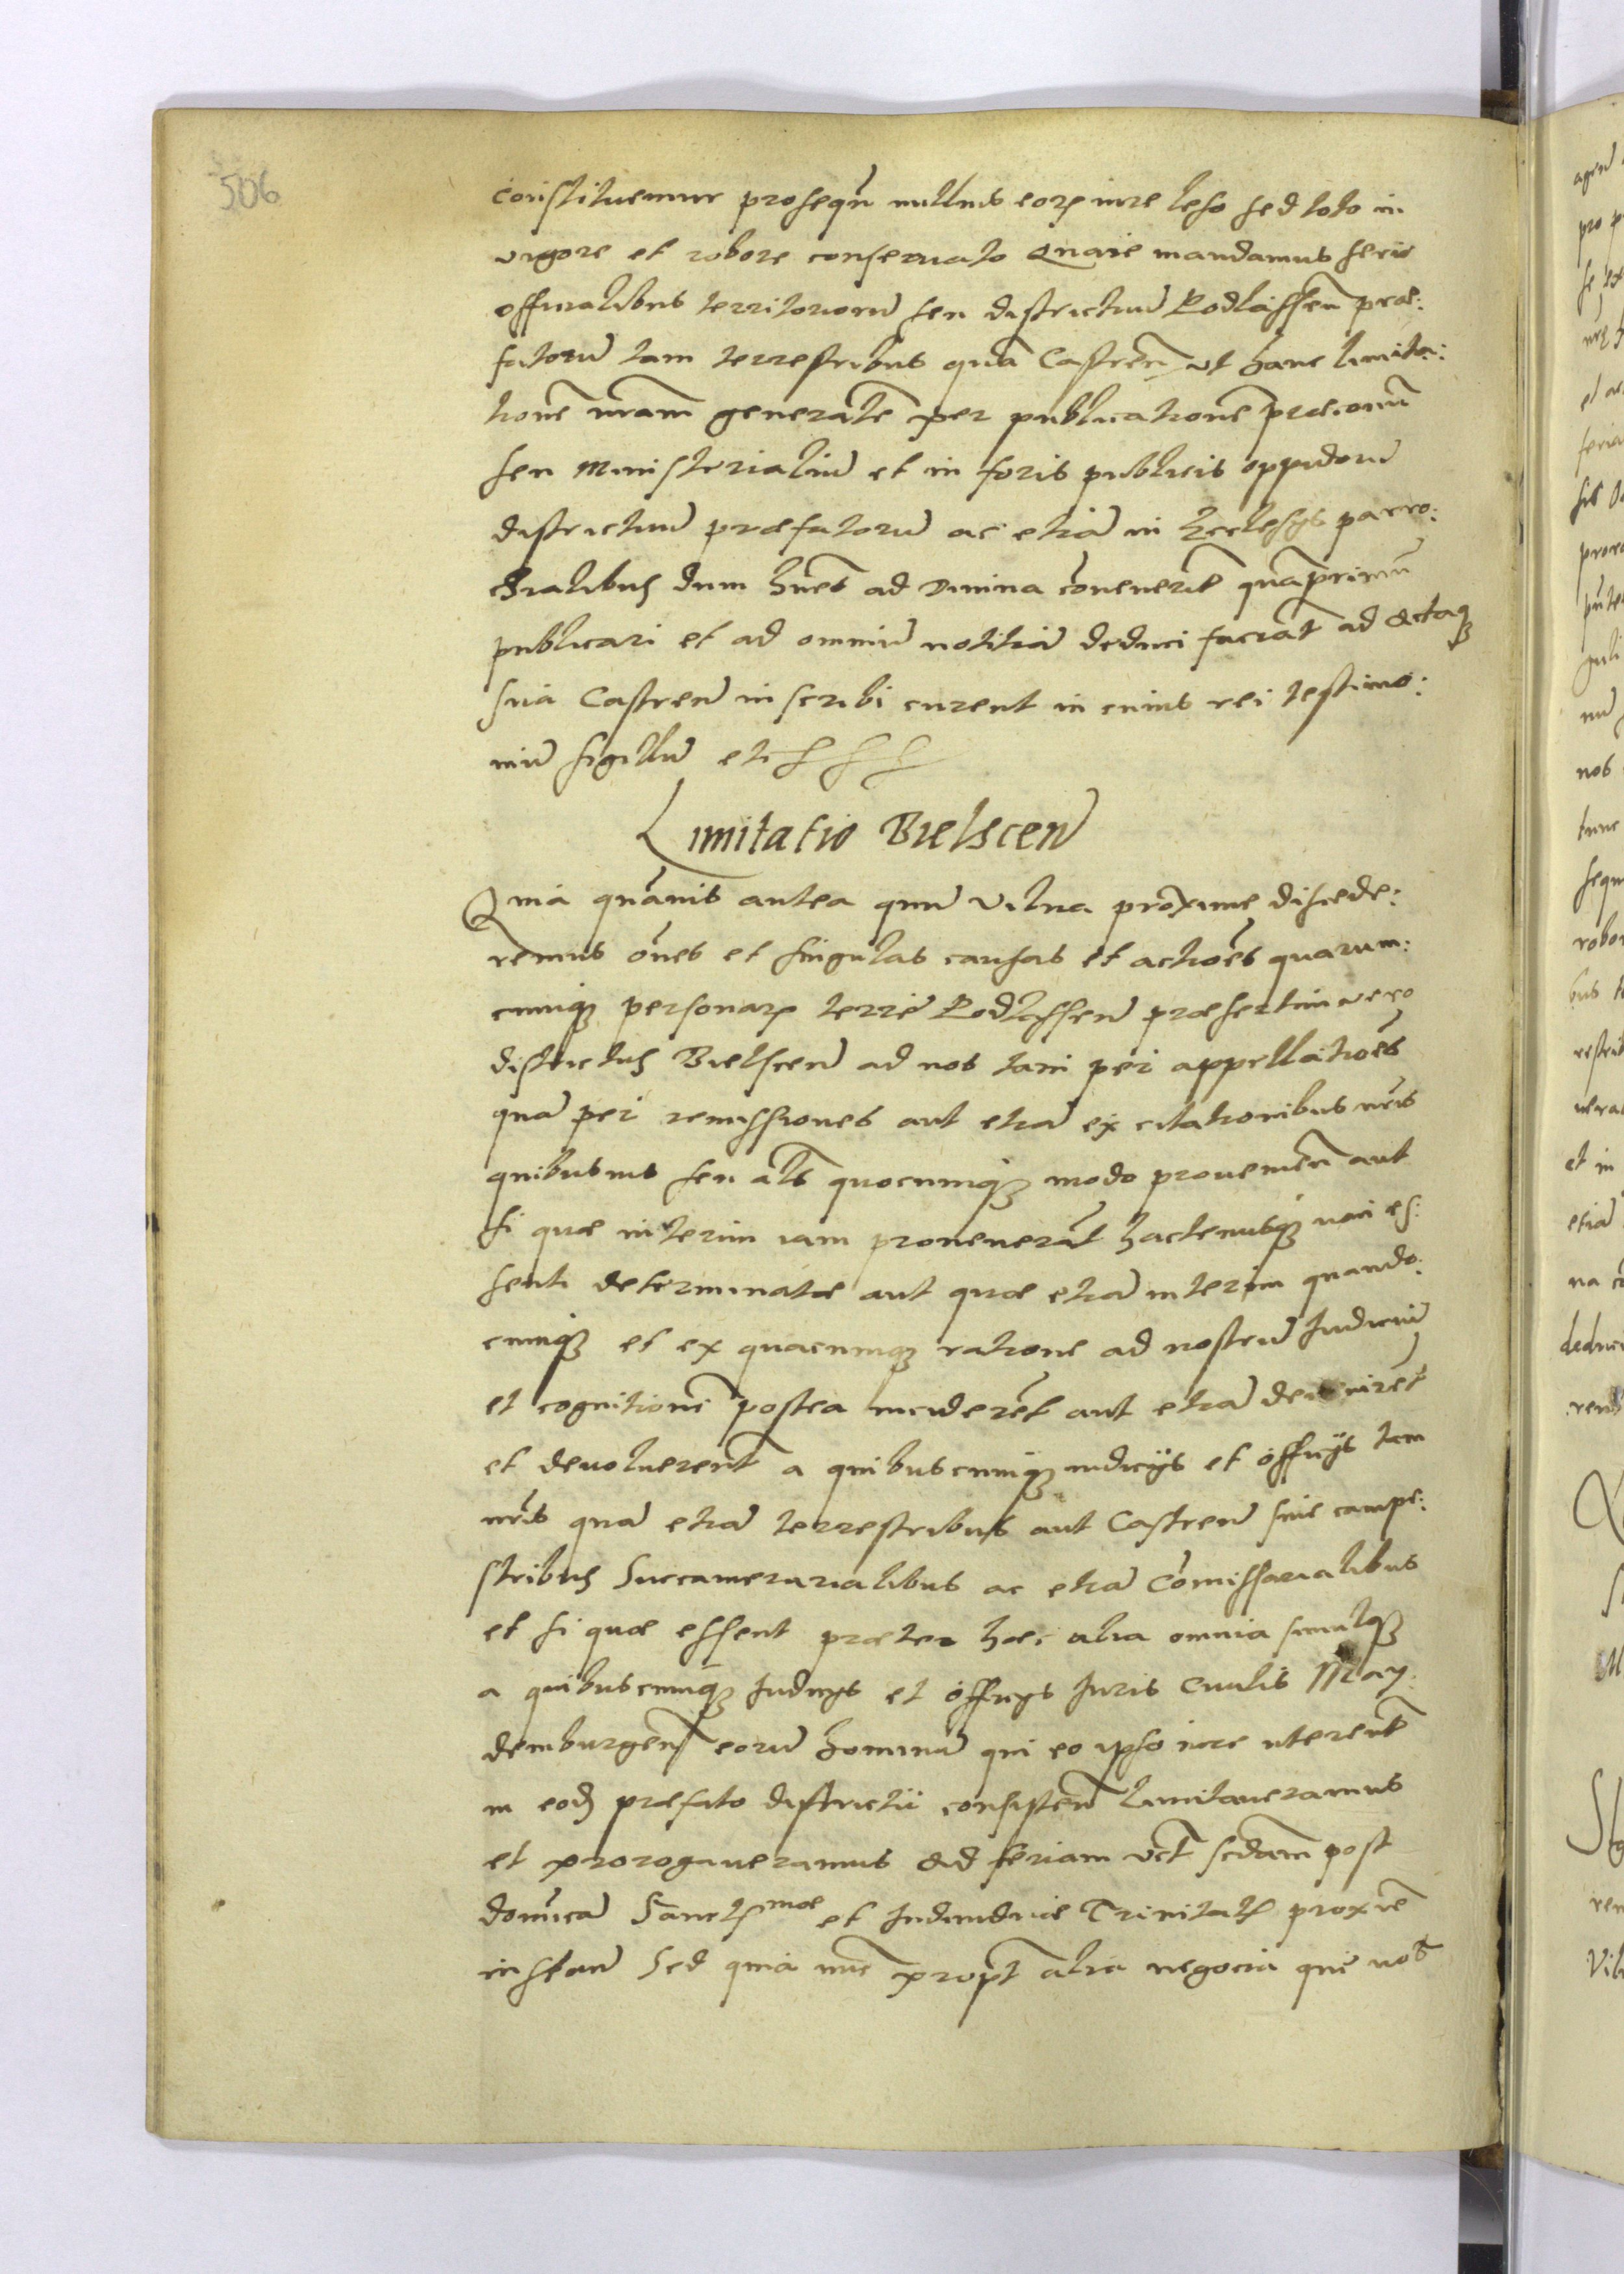 506
constituemur prosequn̄ nullius eorꝝ iure leso sed toto in
vigore et robore conseruato Quare mandamus serio
officialibus territoriorū seu districtuū Podlassen̄ prae:
fatorū tam terrestribus quā Castren̄ vt hanc limita:
tionē nrām generalē per publicationē praeconū
seu Ministerialiū et in foris publicis oppidorū
districtuū praefatorū ac etiā in Ecclesijs parro:
chialibus dum hōnēs ad Diuina cōuenerīt quāprimū
publicari et ad omniū notitiā deduci faciāt ad Actaqꝫ
sua Castren̄ inscribi curent in cuius rei testimo:
niū sigillū etc
Limitatio Bielscen̄
Quia quāuis antea quū Vilna proxime discede:
remus oēs et singulas causas et actiōēs quarum:
cunqꝫ personarꝝ terrae Podlassen̄ praesertim vero
districtus Bielscen̄ ad nos tam per appellatiōēs
quā per remissiones aut etiā ex citationibus nr̄is
quibusuis seu als quocunqꝫ modo prouenien̄ aut
si quae interim iam prouenerāt hactenusqꝫ non es:
sent determinatae aut quae etiā interim quando:
cunqꝫ et ex quacunqꝫ ratione ad nostrū Iudiciū
et cognitionē postea inciderēt aut etiā deuenirēt
et deuoluerent̄ a quibuscunqꝫ iudicijs et officijs tam
nr̄is quā etiā terrestribus aut Castren̄ siue campe:
stribus Succamerarialibus ac etiā Cōmissarialibus
et si quae essent praeter haec alia omnia simulqꝫ
a quibuscunqꝫ Iudicijs et officijs Iuris Ciuilis May:
demburgen̄ eorū hominū qui eo ipso iure uterent̄
in eodē praefato districtu consisten̄ limitaueramus
et prorogaueramus ad feriam vt̄ scdam post
domīcā Sanctissmae et Indiuiduae Trinitatis proxīe
instan̄ Sed quia nūc propt̄ alia negocia quae nob̄